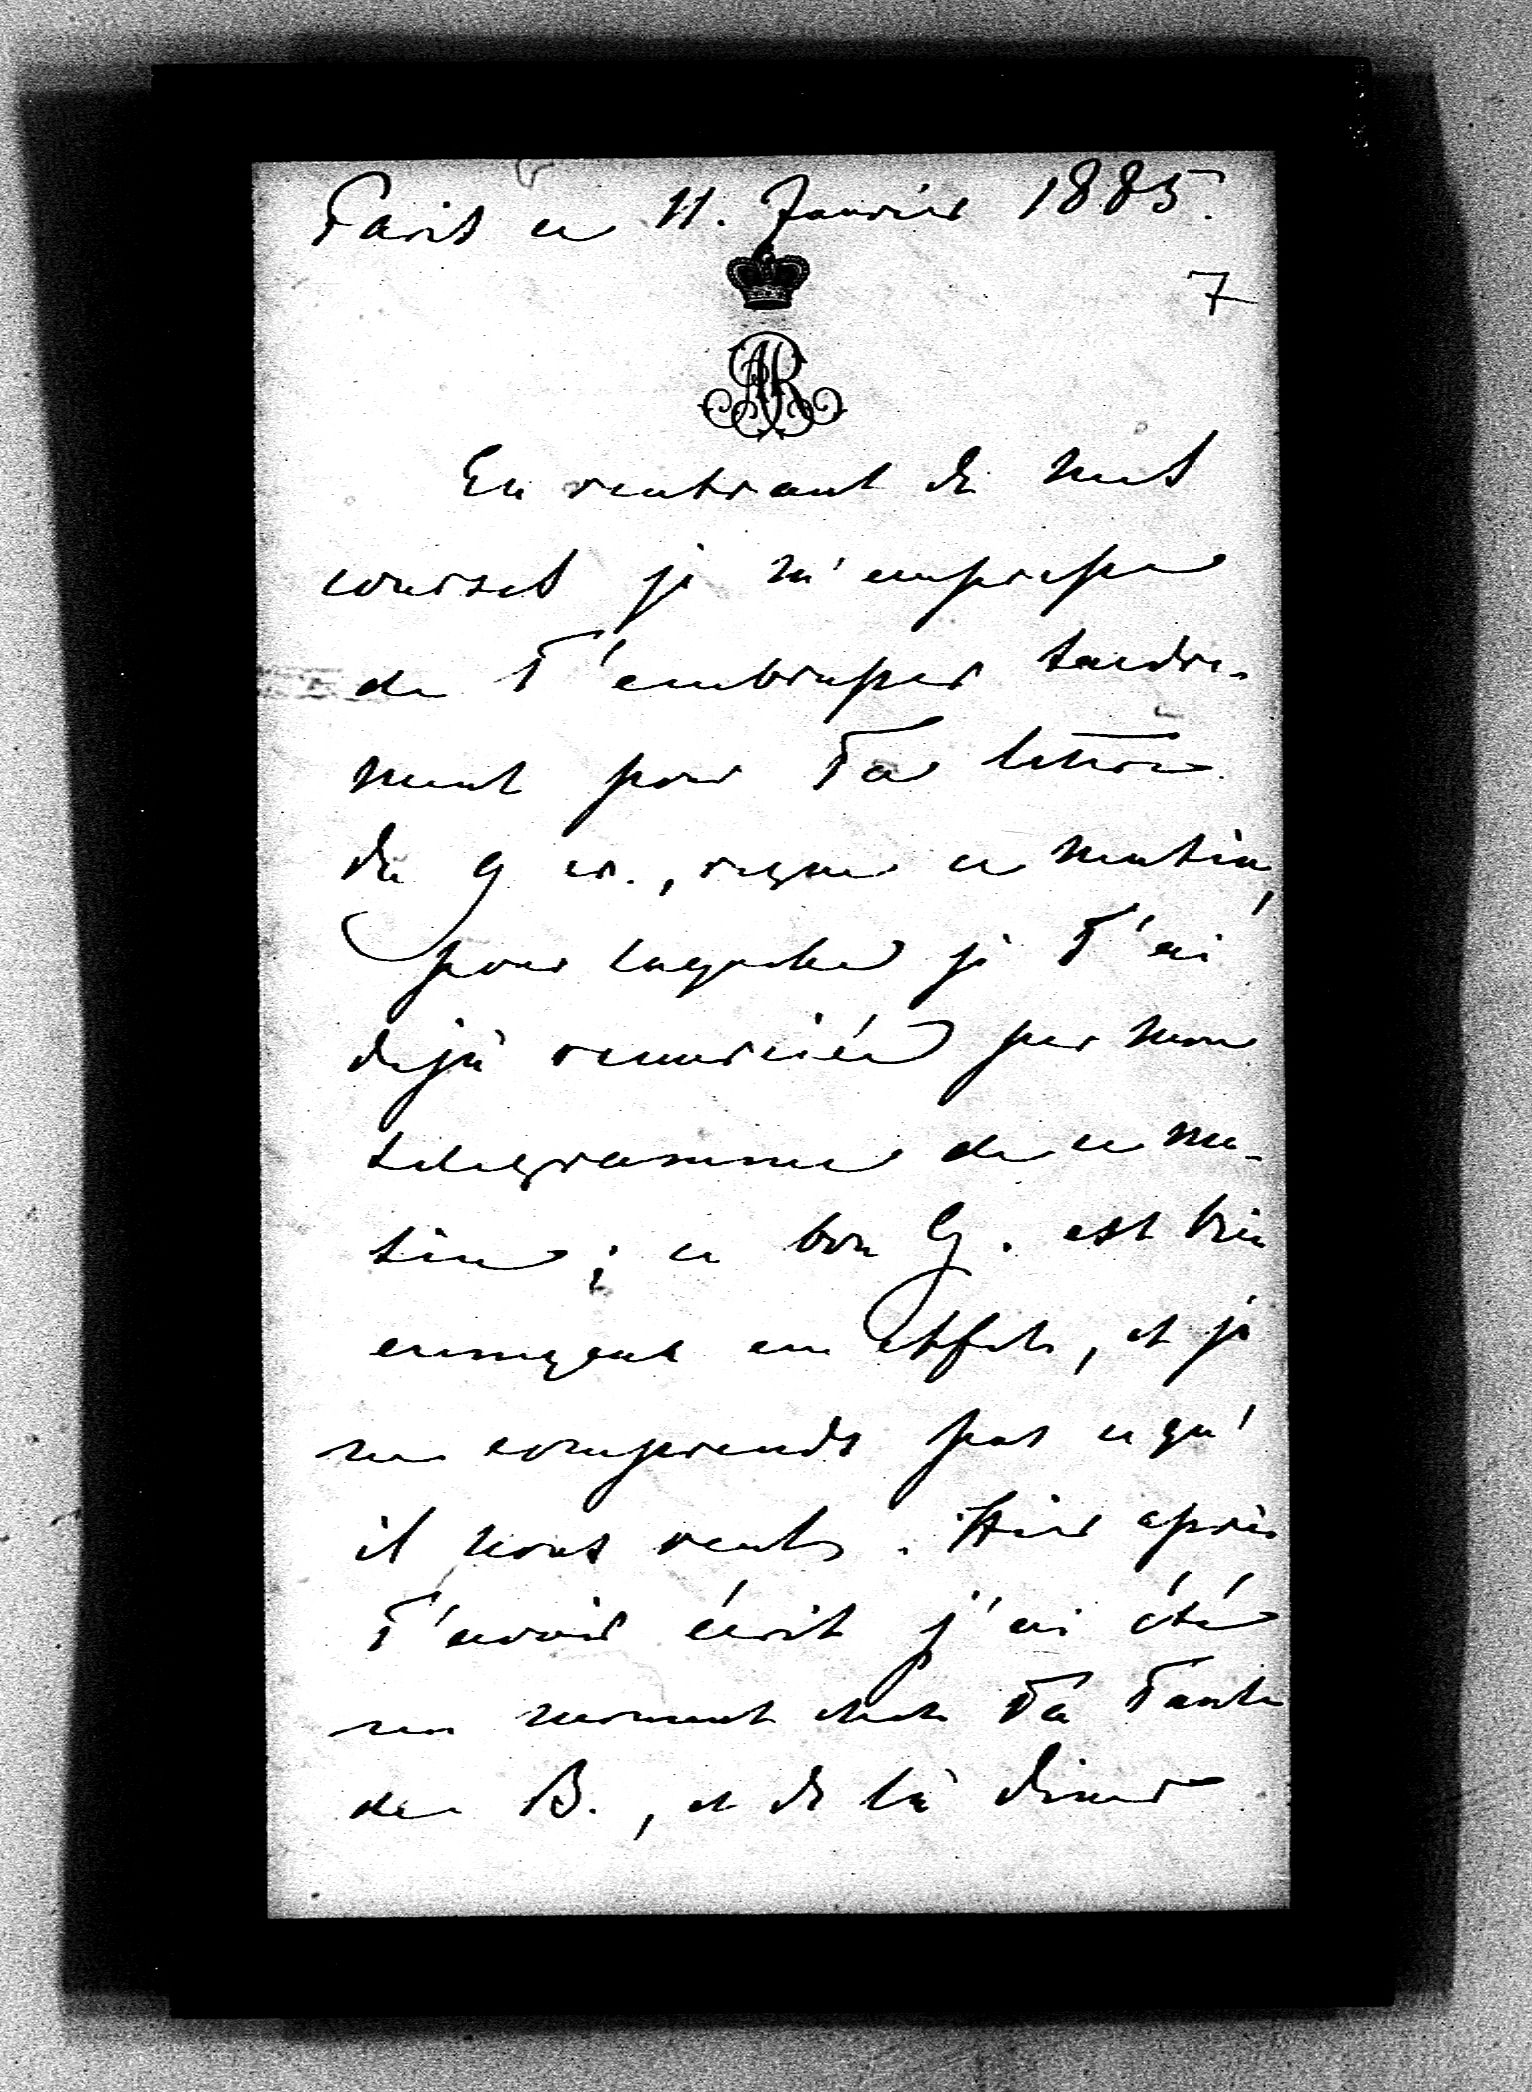 Paris ce 11. Janvier 1885.
7
AR
En rentrant de mes
courses je m'empresse
de T'embrasser tendre-
ment pour Ta lettre
du 9 cr., reçue ce matin,
pour laquelle je T'ai
dejà remerciée par mon
telegramme de ce ma-
tin; ce bon G. est bien
ennuyeux en effet, et je
ne comprends pas ce qu'
il nous veut. Hier après
T'avoir écrit j'ai été
un moment chez Ta Tante
de B., et de là diner